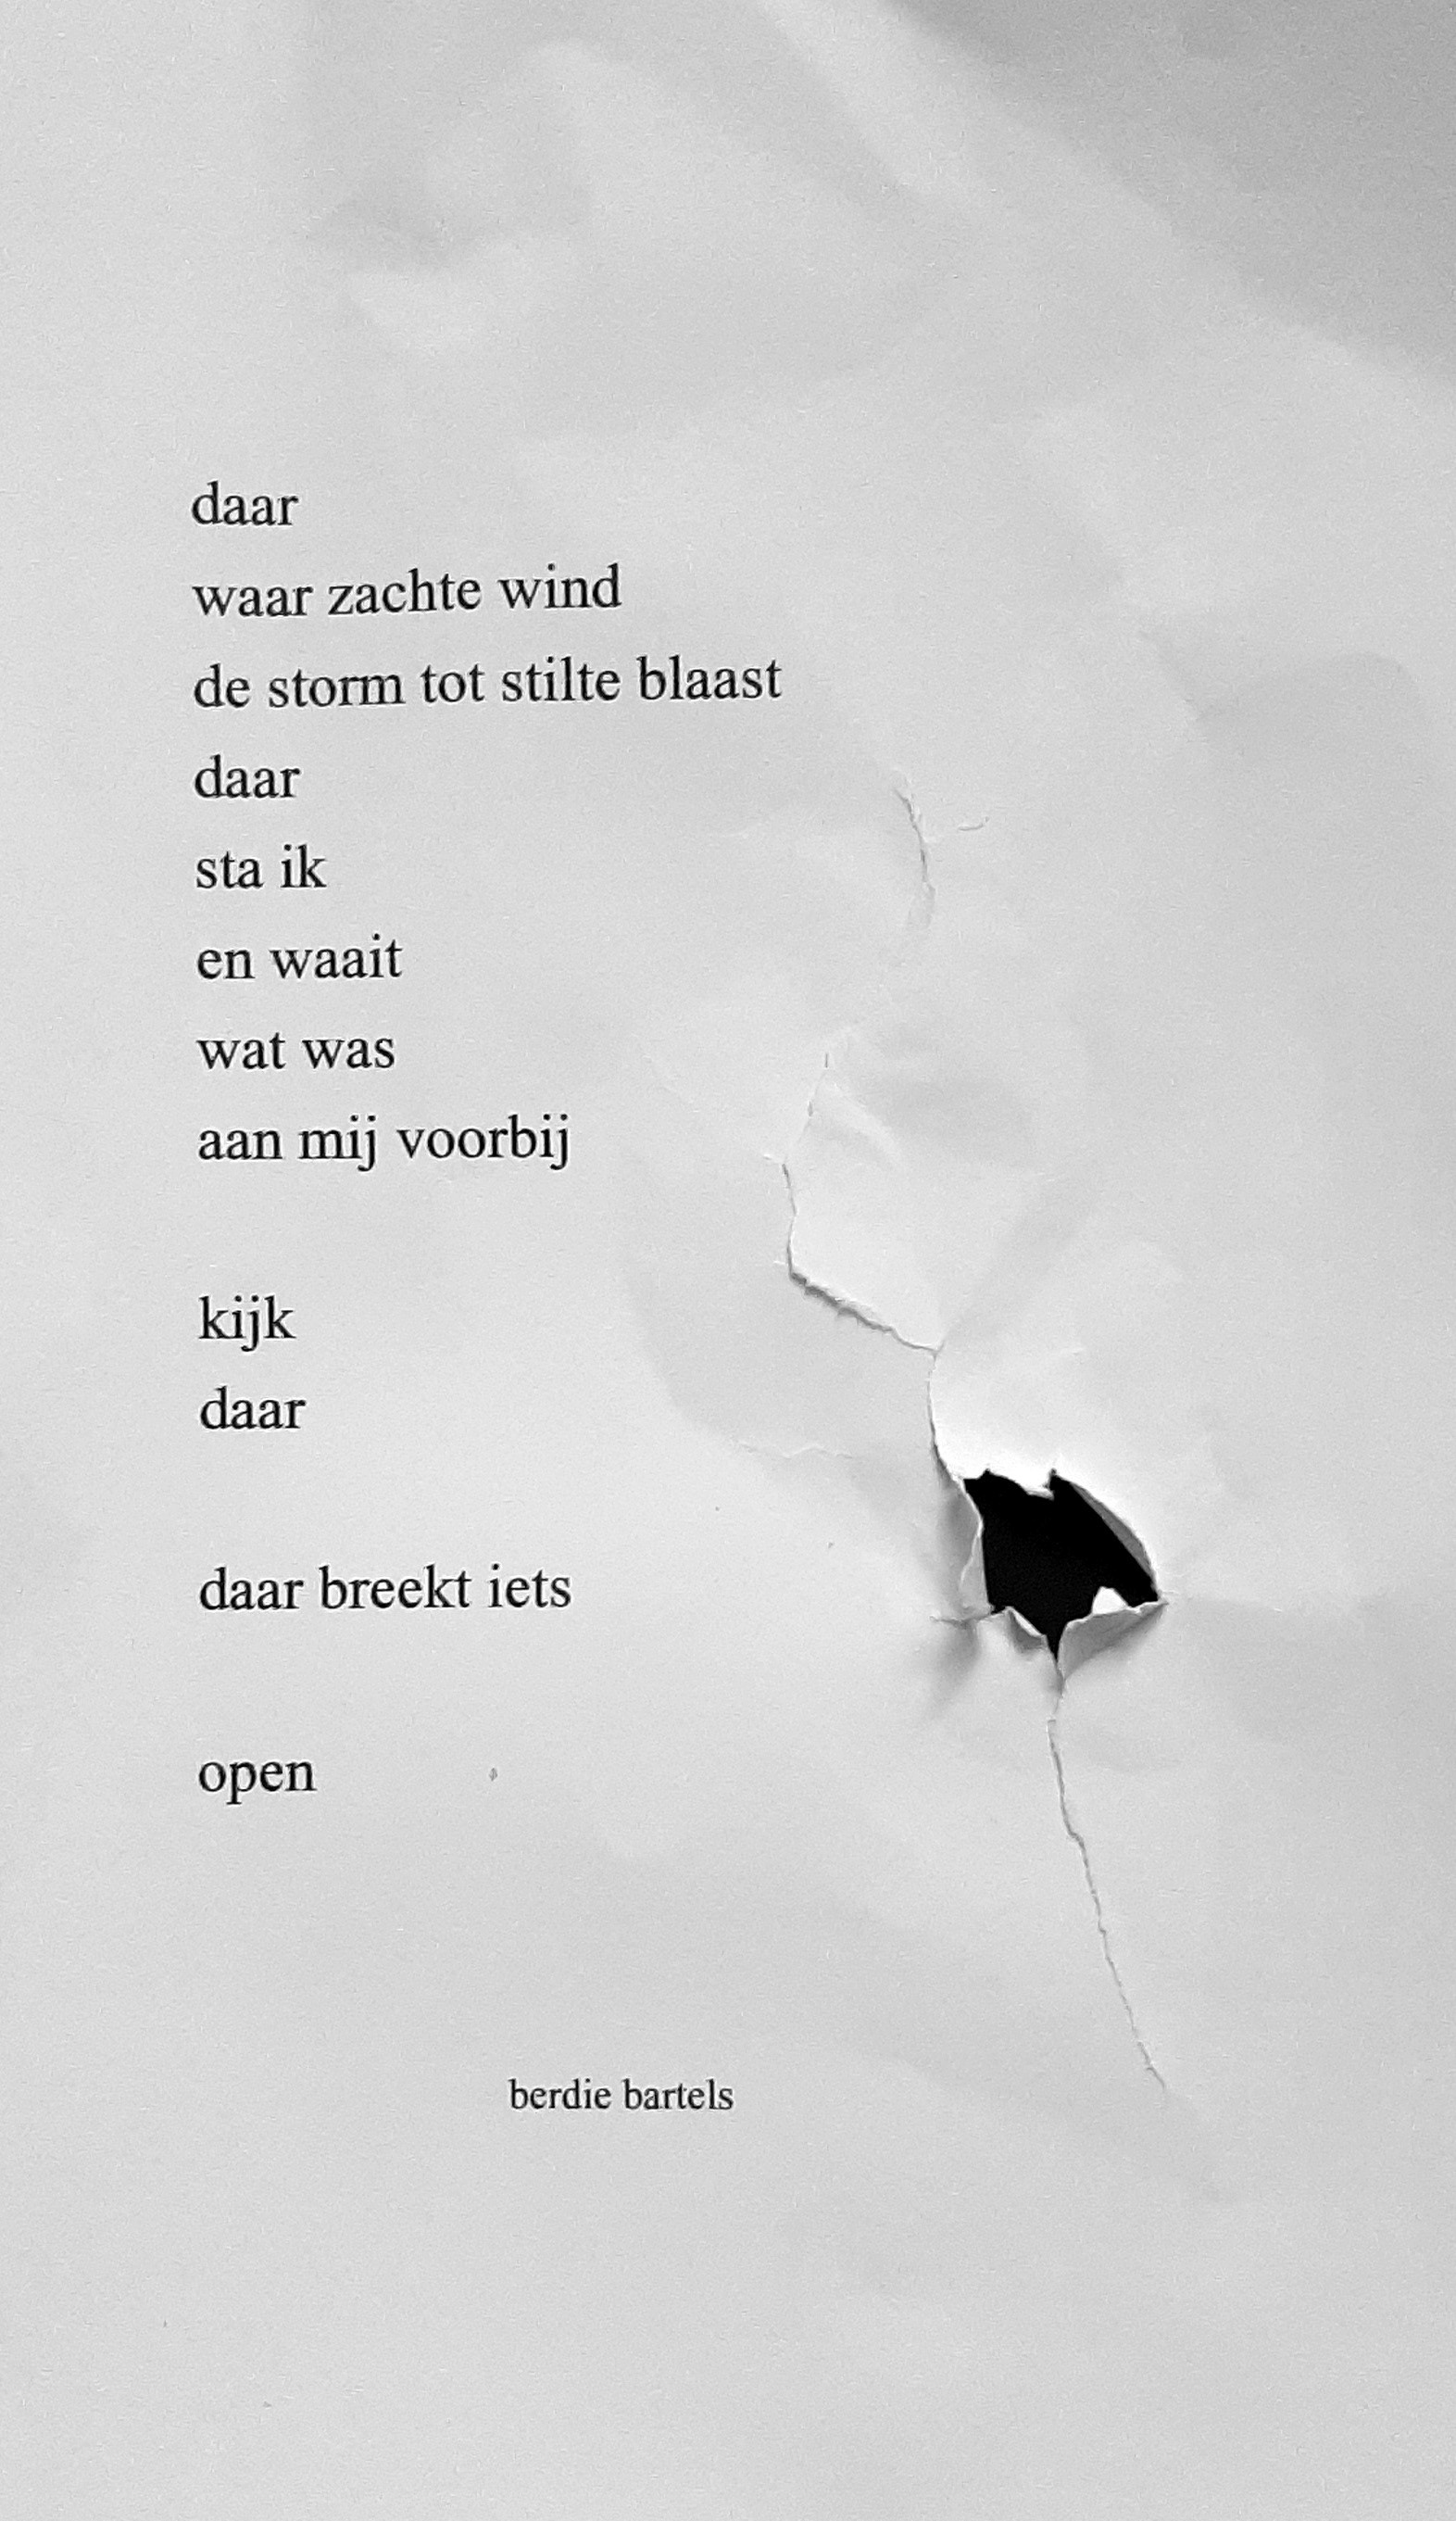 daar
waar zachte wind
de storm tot stilte blaast
daar
sta ik
en waait
wat was
aan mij voorbij
kijk
daar
daar breekt iets
open
berdie bartels